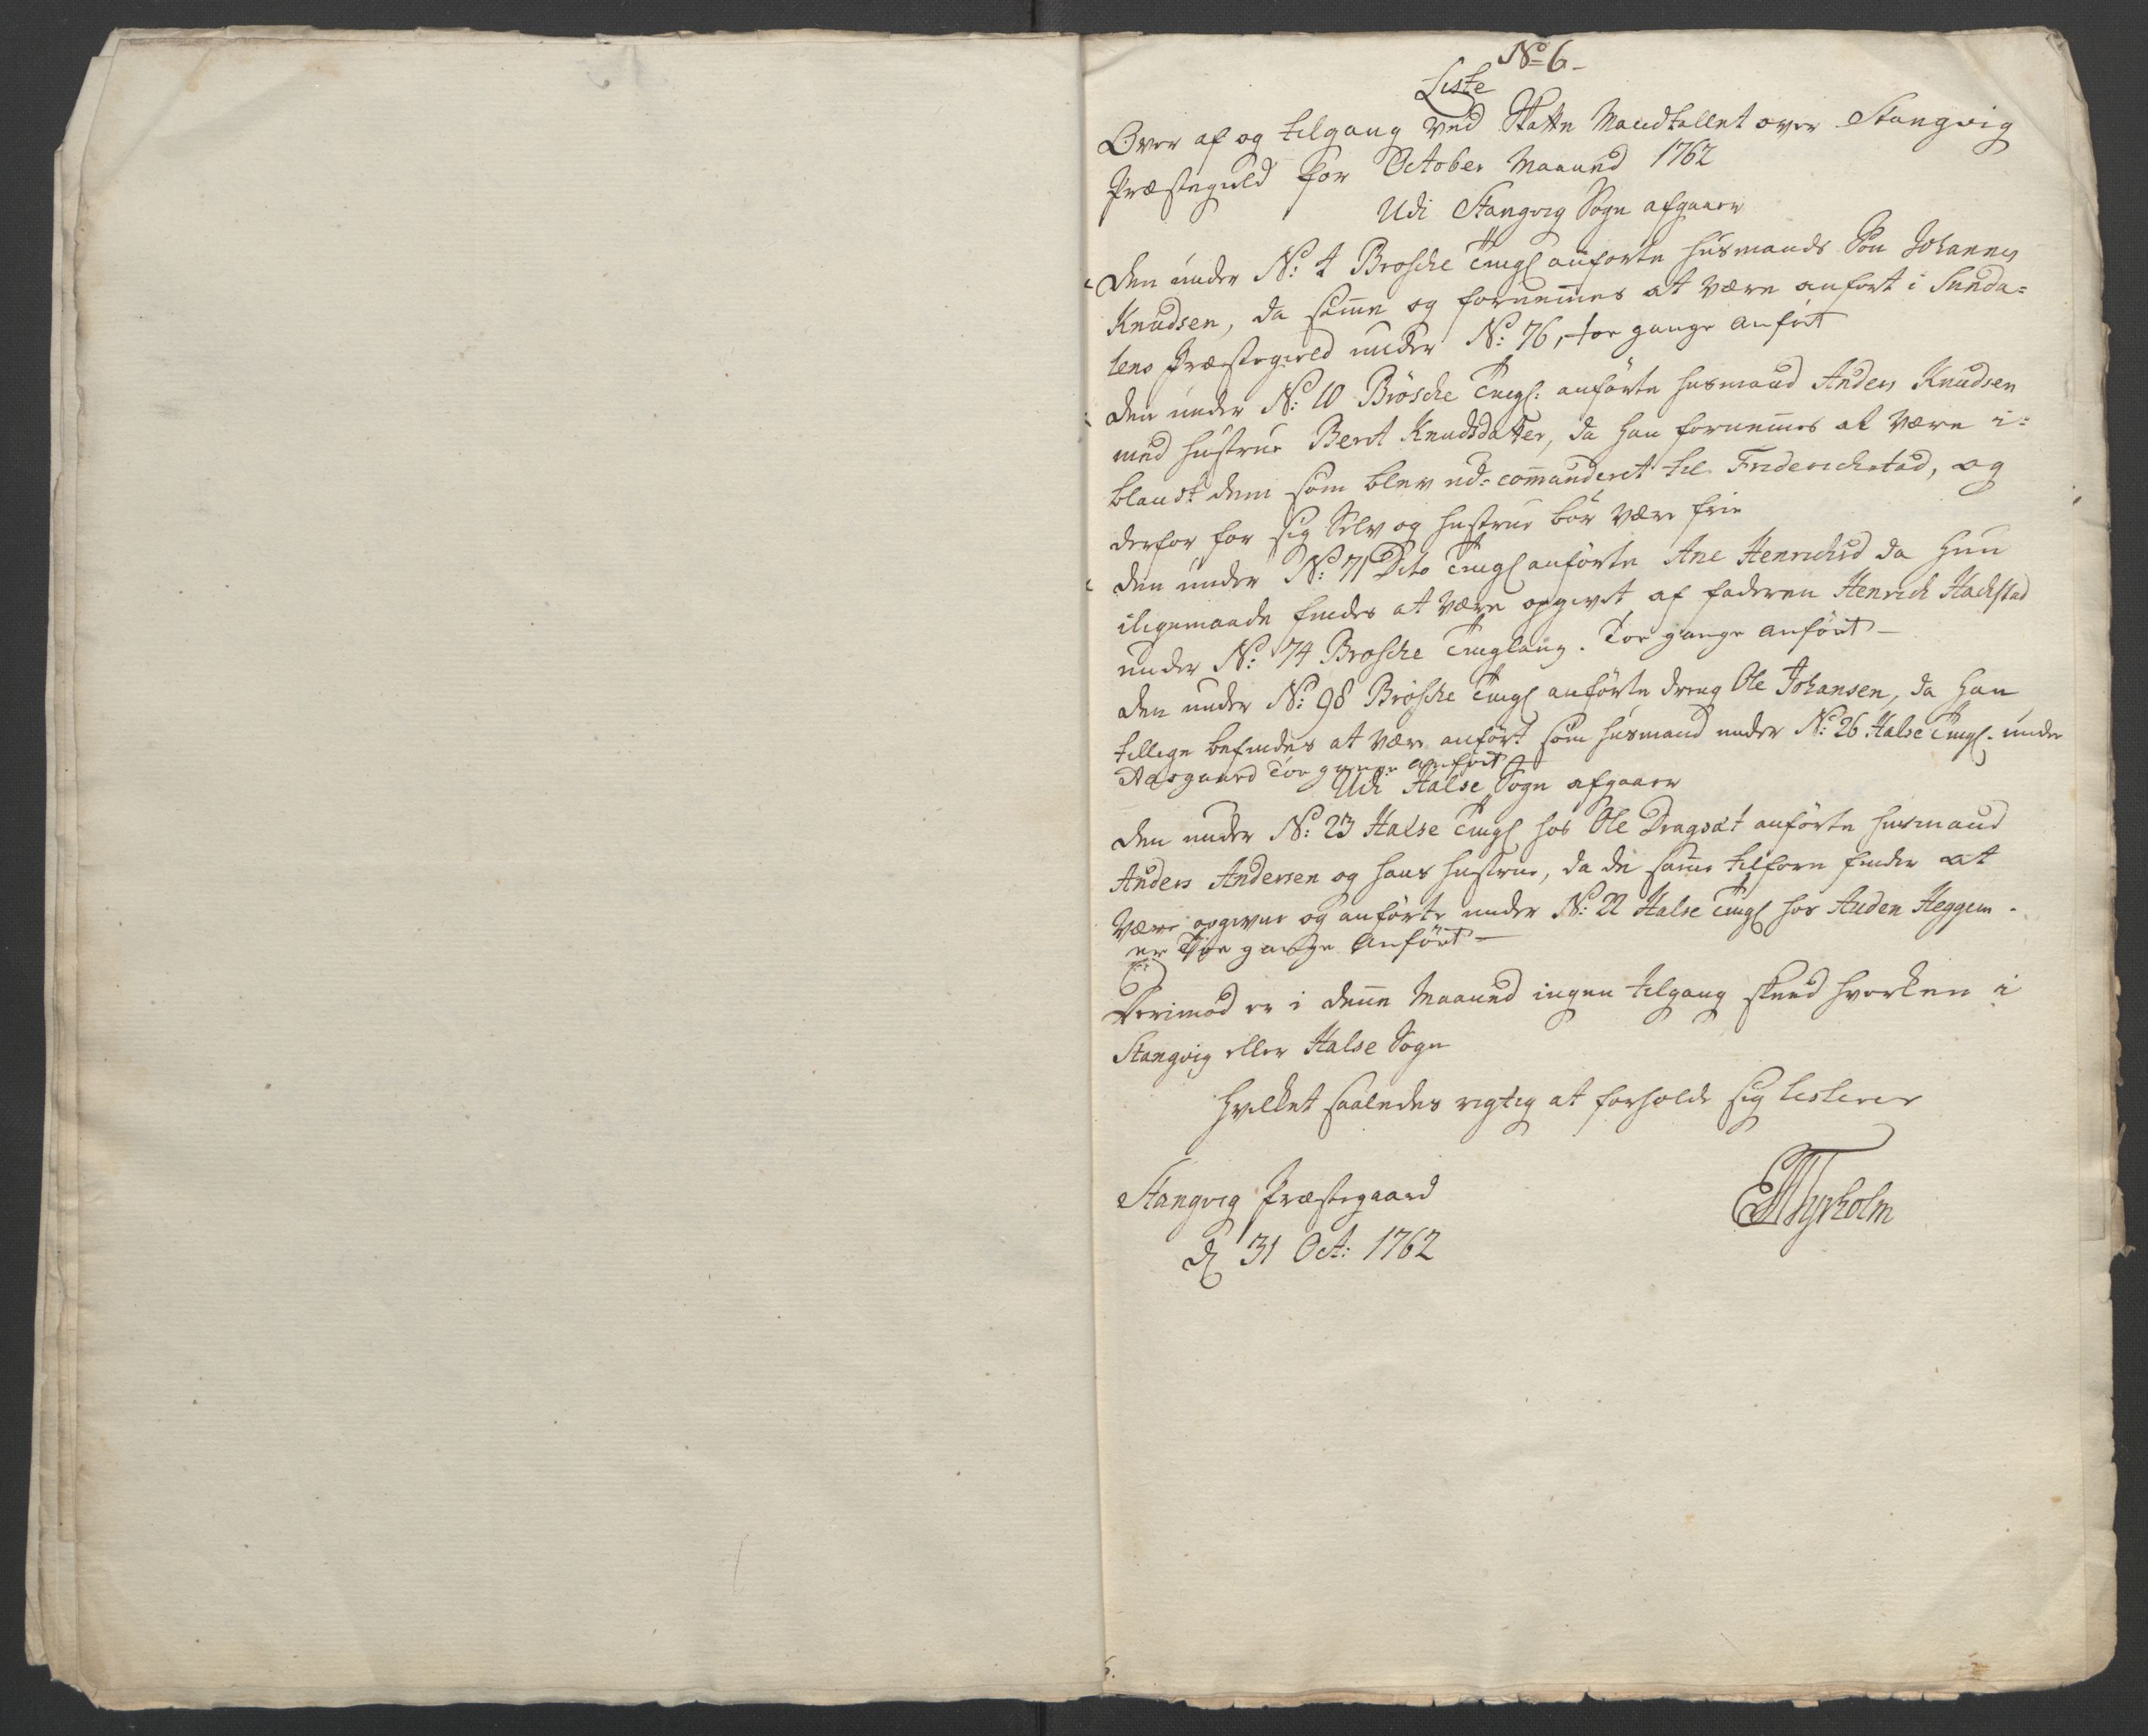 No 6-
Liste
Over af og tilgang ved Skatte Mandtallet over Stangvig
Præstegield for October Maaned 1762
Udi Stangvig Sogn afgaaer
Den under No: 4 Brøsche Tingl anførte huusmands Søn Johannes
Knudsen, da samme og fornemmes at være anført i Sunda-
lens Præstegield under No: 76, toe gange anført
Den under No: 10 Brösche Tingl: anførte huusmand Anders Knudsen
med hustrue Berit Knudsdatter, da han fornemmes at være i-
blandt dem som blev ud-commanderet til Friderichstad, og
derfor for sig Selv og hustrue bör være frie
Den under No: 71 Dito Tingl anførte Ane Henrichsd da hun
iligemaade findes at være opgivet af faderen Henrich Hachstad
under No: 74 Brøsche Tinglaug. Toe gange anført -
Den under No: 98 Brøsche Tingl anførte dreng Ole Johansen, da han
tillige befindes at være anført som huusmand under No: 26 Halse Tingl. under
Aasgaard Toe gange anført
Udi Halse Sogn afgaaer
Den under No: 23 Halse Tingl hos Ole Dragsæt anførte huusmand
Anders Andersen og hans hustrue, da de samme tilforn findes at
være opgivne og anførte under No: 22 Halse Tingl hos Auden Heggem.
er Toe gange Anført -
Derimod er i denne Maaned ingen tilgang skeed hverken i
Stangvig eller Halse Sogn
Hvilket saaledes rigtig at forholde sig testerer
Stangvig Præstegaard
d 31 Oct: 1762
Thyrholm